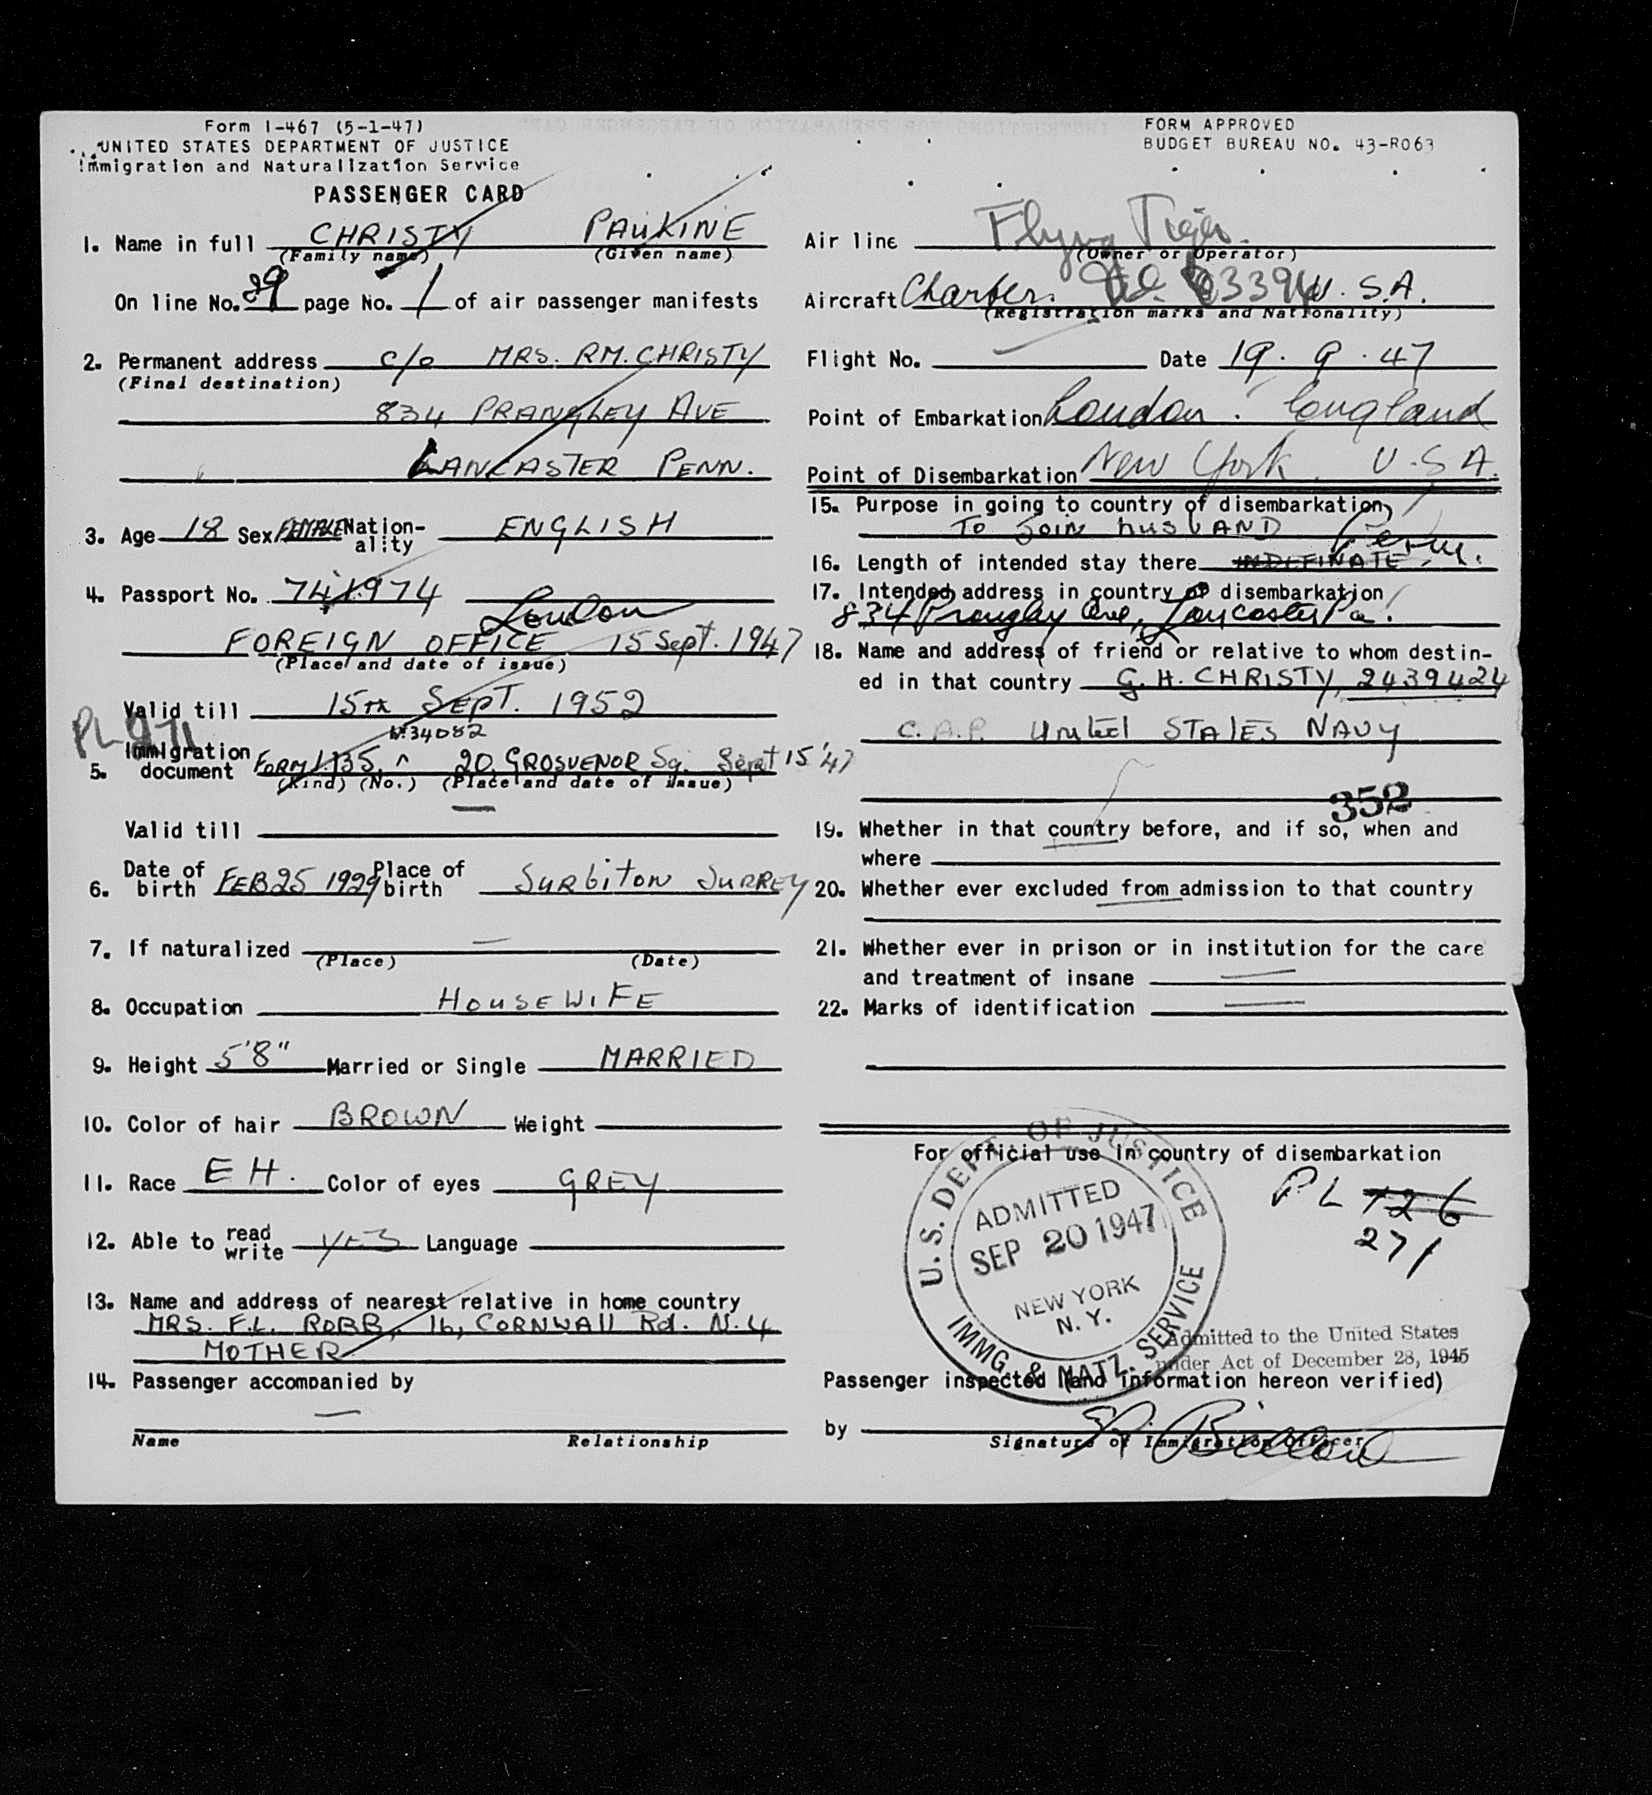 Form I-467 (5-1-47)
UNITED STATES DEPARTMENT OF JUSTICE
Immigration and Naturalization Service
PASSENGER CARD
1. Name in full CHRISTY PAULINE
(Family name) (Given name)
On line No. 29 page No. 1 of air passenger manifests
2. Permanent address c/o MRS. RM. CHRISTY
(Final destination)
834 PRANGLEY AVE
LANCASTER PENN.
3. Age 18 Sex FEMALE Nation-ality ENGLISH
4. Passport No. 741974
London
FOREIGN OFFICE 15 Sept. 1947
(Place and date of issue)
Valid till 15TH SEPT. 1952
PL 271
No 34082
5. Immigration document FORM I.135, ^ 20, GROSVENOR Sq. Sept 15 '47
(Kind) (No.) (Place and date of issue)
Valid till —
6. Date of birth FEB 25 1929 Place of birth SURBITON SURREY
7. If naturalized —
(Place) (Date)
8. Occupation HOUSEWIFE
9. Height 5'8" Married or Single MARRIED
10. Color of hair BROWN Weight
11. Race EH. Color of eyes GREY
12. Able to read write YES Language
13. Name and address of nearest relative in home country
MRS. F.L. ROBB, 16, CORNWALL Rd. N.4
MOTHER
14. Passenger accompanied by
—
Name Relationship
FORM APPROVED
BUDGET BUREAU NO. 43-R063
Air line Flying Tiger.
(Owner or Operator)
Aircraft Charter. U.S.A.
(Registration marks and Nationality)
Flight No. — Date 19.9.47
Point of Embarkation London. England
Point of Disembarkation New York. U.S.A.
15. Purpose in going to country of disembarkation,
TO JOIN HUSBAND
16. Length of intended stay there INDEFINATE. Perm.
17. Intended address in country of disembarkation
834 Prangley Ave, Lancaster Pa.
18. Name and address of friend or relative to whom destin-
ed in that country G.H. CHRISTY, 2439424
C.A.P. United STATES NAVY
352
19. Whether in that country before, and if so, when and
where
20. Whether ever excluded from admission to that country
21. Whether ever in prison or in institution for the care
and treatment of insane —
22. Marks of identification —
For official use in country of disembarkation
PL 126
271
U.S. DEPT. OF JUSTICE
ADMITTED
SEP 20 1947
NEW YORK
N.Y.
IMMG. & NATZ. SERVICE
Admitted to the United States
under Act of December 28, 1945
Passenger inspected (and information hereon verified)
by
Signature of Immigration Officer